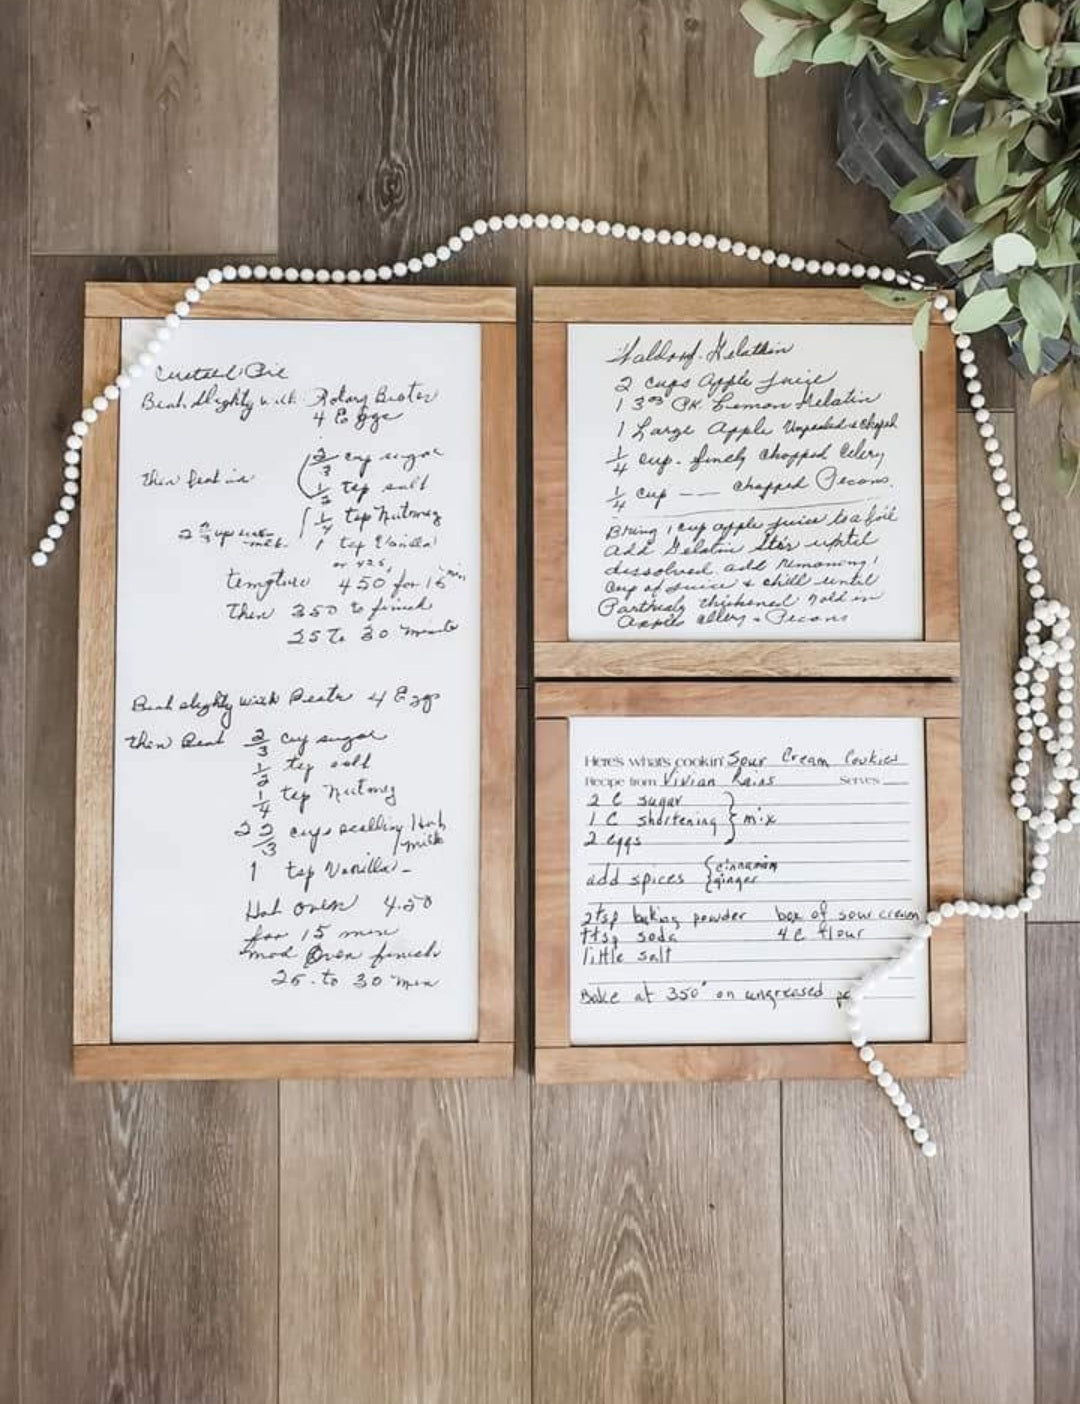 Custard Pie
Beat slightly with Rotary Beater
4 Eggs
then beat in
2/3 cup sugar
1/2 tsp salt
1/4 tsp Nutmeg
2 2/3 cup milk
1 tsp Vanilla
or 425,
450 for 15 min
then 350 to finish
25 to 30 minute
Beat slightly with Beater 4 Eggs
then Beat 2/3 cup sugar
1/2 tsp salt
1/4 tsp Nutmeg
2 2/3 cups scalding Hot
milk
1 tsp Vanilla -
Hot oven 450
for 15 min
mod Oven finish
25 - to 30 min
Waldorf - Gelatkin
2 cups Apple Juice
1 3oz PK. Lemon Gelatin
1 Large Apple Unpealed & choped
1/4 cup - finely chopped Celery
1/4 cup -- -- chopped Pecans.
Bring 1 cup apple juice to a boil
add Gelatin Stir uptil
dissolved, add remaning 1
cup of juice & chill until
Partialy thickened fold in
Apples celery & Pecans
Here's what's cookin' Sour Cream Cookies
Recipe from Vivian Rains Serves
2 C sugar
1 C shortening } mix
2 eggs
add spices { cinnamon
ginger
2 tsp baking powder box of sour cream
1 tsp soda 4 C flour
little salt
Bake at 350° on ungreased